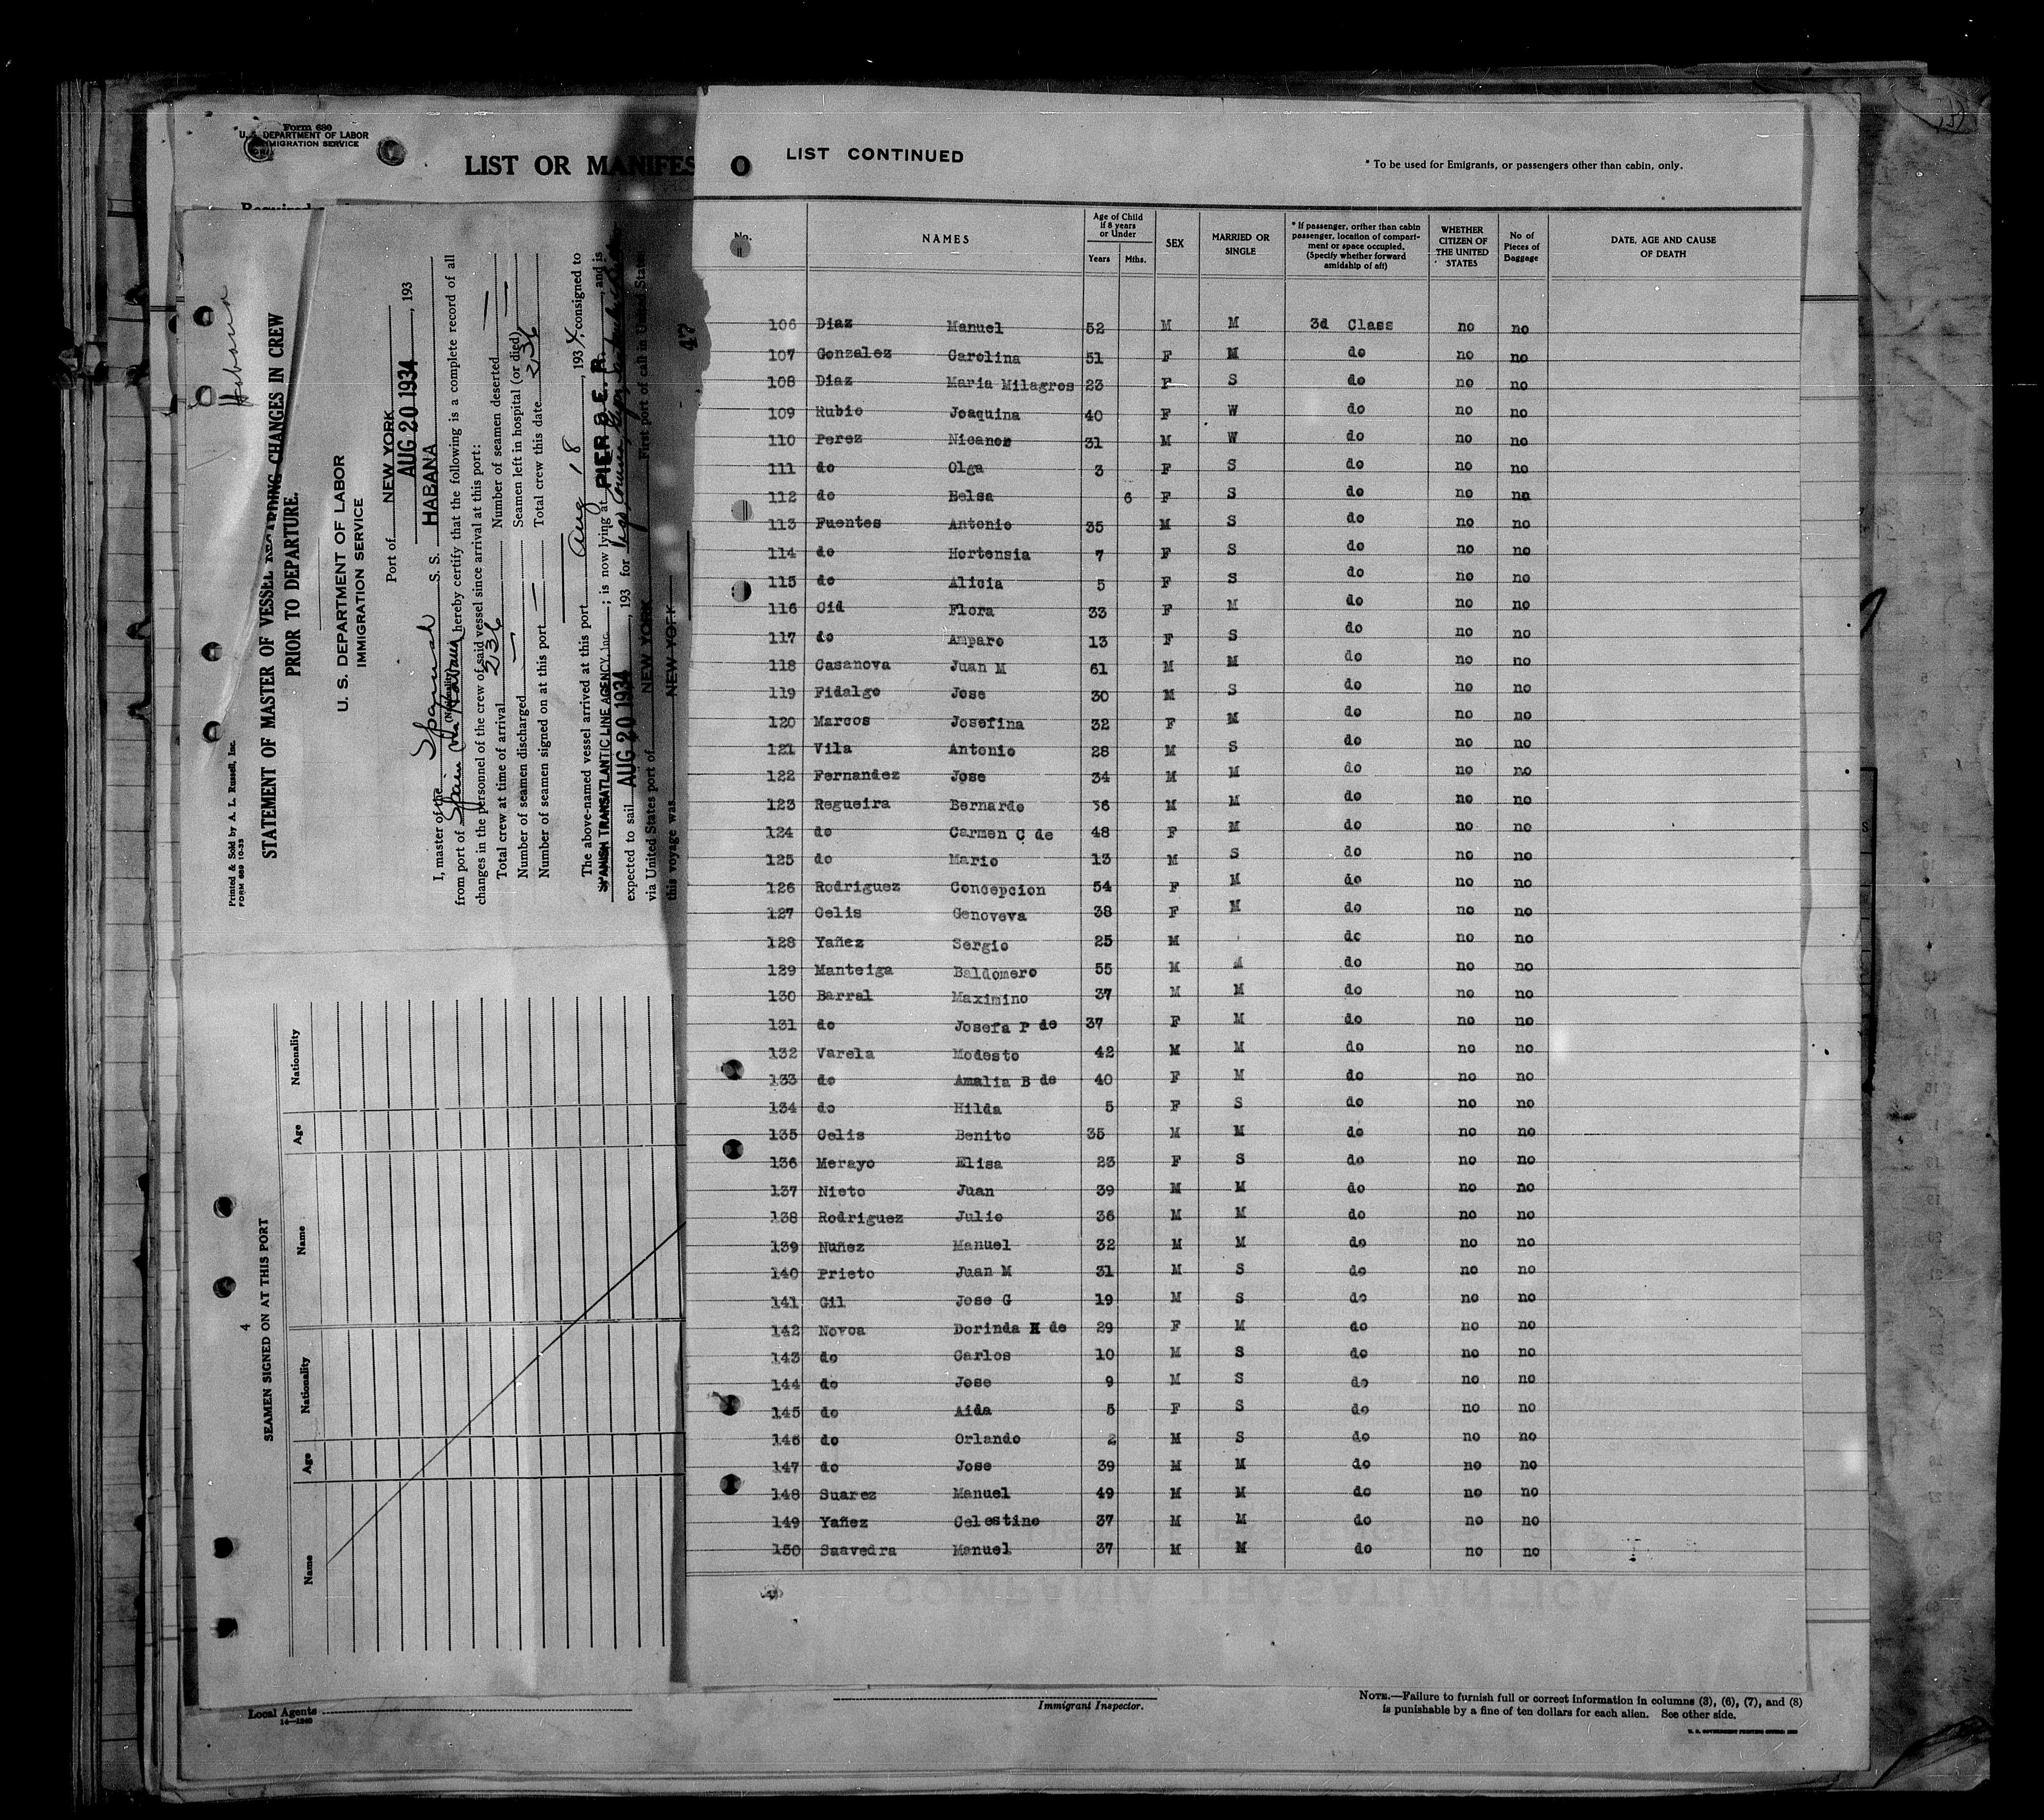 Form 680
U. S. DEPARTMENT OF LABOR
IMMIGRATION SERVICE
LIST OR MANIFES O
Habana
Printed & Sold by A. L. Russell, Inc.
FORM 689 10-33
STATEMENT OF MASTER OF VESSEL REGARDING CHANGES IN CREW
PRIOR TO DEPARTURE.
U. S. DEPARTMENT OF LABOR
IMMIGRATION SERVICE
Port of NEW YORK
AUG 20 1934, 193
I, master of the Spanish S. S. HABANA
from port of Spain via Habana hereby certify that the following is a complete record of all
changes in the personnel of the crew of said vessel since arrival at this port:
Total crew at time of arrival 236 Number of seamen deserted —
Number of seamen discharged — Seamen left in hospital (or died) —
Number of seamen signed on at this port — Total crew this date 236
The above-named vessel arrived at this port Aug 18, 1934 consigned to
SPANISH TRANSATLANTIC LINE AGENCY, Inc.; is now lying at PIER 8 E. R., and is
expected to sail AUG 20 1934, 193 for Vigo
via United States port of NEW YORK First port of call in United States
this voyage was NEW YORK
47
4
SEAMEN SIGNED ON AT THIS PORT
Name Age Nationality Name Age Nationality
LIST CONTINUED
* To be used for Emigrants, or passengers other than cabin, only.
No. NAMES Age of Child if 8 years or Under Years Mths. SEX MARRIED OR SINGLE * If passenger, orther than cabin passenger, location of compartment or space occupied, (Specify whether forward amidship of aft) WHETHER CITIZEN OF THE UNITED STATES No of Pieces of Baggage DATE, AGE AND CAUSE OF DEATH
106 Diaz Manuel 52 M M 3d Class no no
107 Gonzalez Carolina 51 F M do no no
108 Diaz Maria Milagros 23 F S do no no
109 Rubio Joaquina 40 F W do no no
110 Perez Nicanor 31 M W do no no
111 do Olga 3 F S do no no
112 do Eelsa 6 F S do no no
113 Fuentes Antonio 35 M S do no no
114 do Hortensia 7 F S do no no
115 do Alicia 5 F S do no no
116 Cid Flora 33 F M do no no
117 do Amparo 13 F S do no no
118 Casanova Juan M 61 M M do no no
119 Fidalgo Jose 30 M S do no no
120 Marcos Josefina 32 F M do no no
121 Vila Antonio 28 M S do no no
122 Fernandez Jose 34 M M do no no
123 Regueira Bernardo 36 M M do no no
124 do Carmen C de 48 F M do no no
125 do Mario 13 M S do no no
126 Rodriguez Concepcion 54 F M do no no
127 Celis Genoveva 38 F M do no no
128 Yañez Sergio 25 M do no no
129 Manteiga Baldomero 55 M M do no no
130 Barral Maximino 37 M M do no no
131 do Josefa P de 37 F M do no no
132 Varela Modesto 42 M M do no no
133 do Amalia B de 40 F M do no no
134 do Hilda 5 F S do no no
135 Celis Benito 35 M M do no no
136 Merayo Elisa 23 F S do no no
137 Nieto Juan 39 M M do no no
138 Rodriguez Julio 36 M M do no no
139 Nuñez Manuel 32 M M do no no
140 Prieto Juan M 31 M S do no no
141 Gil Jose G 19 M S do no no
142 Novoa Dorinda de 29 F M do no no
143 do Carlos 10 M S do no no
144 do Jose 9 M S do no no
145 do Aida 5 F S do no no
146 do Orlando 2 M S do no no
147 do Jose 39 M M do no no
148 Suarez Manuel 49 M M do no no
149 Yañez Celestino 37 M M do no no
150 Saavedra Manuel 37 M M do no no
COMPAÑIA TRASATLANTICA
Local Agents
14—1240
Immigrant Inspector.
NOTE.—Failure to furnish full or correct information in columns (3), (6), (7), and (8)
is punishable by a fine of ten dollars for each alien. See other side.